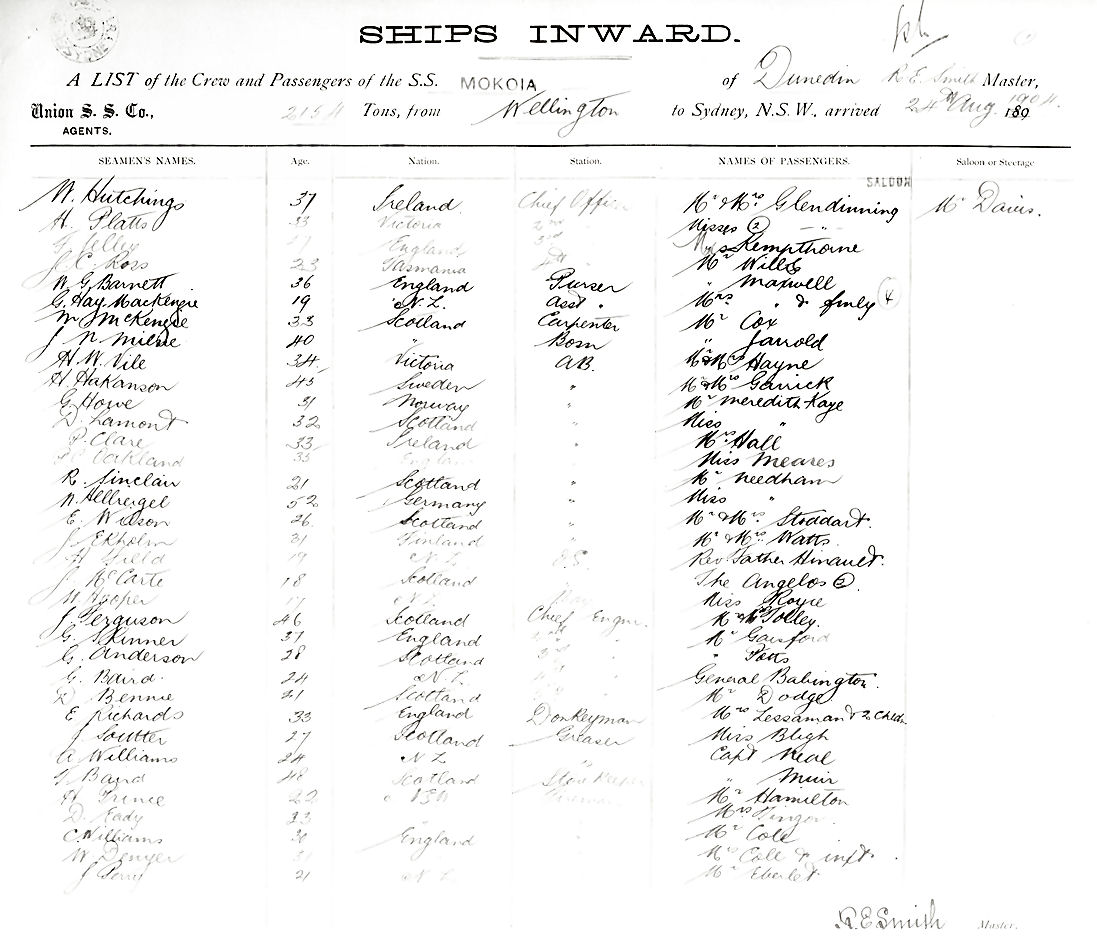 SHIPS INWARD.
A LIST of the Crew and Passengers of the S.S. MOKOIA of Dunedin R. E. Smith Master,
Union S. S. Co., 2154 Tons, from Wellington to Sydney, N.S.W., arrived 24th Aug 1904.
AGENTS.
SEAMEN'S NAMES. Age. Nation. Station. NAMES OF PASSENGERS. Saloon or Steerage
SALOON
W. Hutchings 37 Ireland Chief Offic Mr & Mrs Glendinning Mr Davis.
H. Platts 33 Victoria 2nd Misses (2) "
England 3rd Kempthorne
J. C. Ross 23 Tasmania Mr Wills
W. G. Barnett 36 England Purser " Maxwell
G. Hay Mackenzie 19 N.Z. Asst " Mrs " & fmly (4)
McKenzie 33 Scotland Carpenter Mr Cox
J N Milne 40 " Bosn " Jarrold
H. W. Vile 34 Victoria AB. Mr & Mrs Hayne
H. Hakanson 43 Sweden " Mr & Mrs Garrick
G. Howe 31 Norway " Mr Meredith Kaye
D. Lamont 32 Scotland " Miss "
P. Clare 33 Ireland " Mrs Hall
Oakland 35 England " Miss Meares
R. Sinclair 21 Scotland " Mr Needham
52 Germany " Miss "
E. Wilson 26 Scotland " Mr & Mrs Stoddart.
J. Ekholm 31 Finland " Mr & Mrs Watts.
H. 19 N.Z. O.S. Rev. Father Hinault.
J. McCarte 18 Scotland The Angelos (2)
Hooper 17 N.Z. Miss Royce
J. Ferguson 46 Scotland Chief Engnr. Mr & Mrs Tolley.
G. Skinner 37 England 2nd " Mr Gaisford
G. Anderson 28 Scotland 3rd " " Potts
G. Baird 24 N.Z. General Babington.
D. Bennie 21 Scotland Mr Dodge
E Richards 33 England Donkeyman Mrs Lessaman & 2 Chdn
J Soutter 27 Scotland Greaser Miss Bligh
A Williams 24 N Z " Capt Neal
Baird 48 Scotland Store Keeper " Muir
H Prince 22 USA Fireman Mr Hamilton
D. Eady 33 " Mrs
C Williams 36 England Mr Cole
W Denyer 31 Mrs Cole & inft.
J Perry 21 N Z Mr Eberlet
R. E. Smith Master.